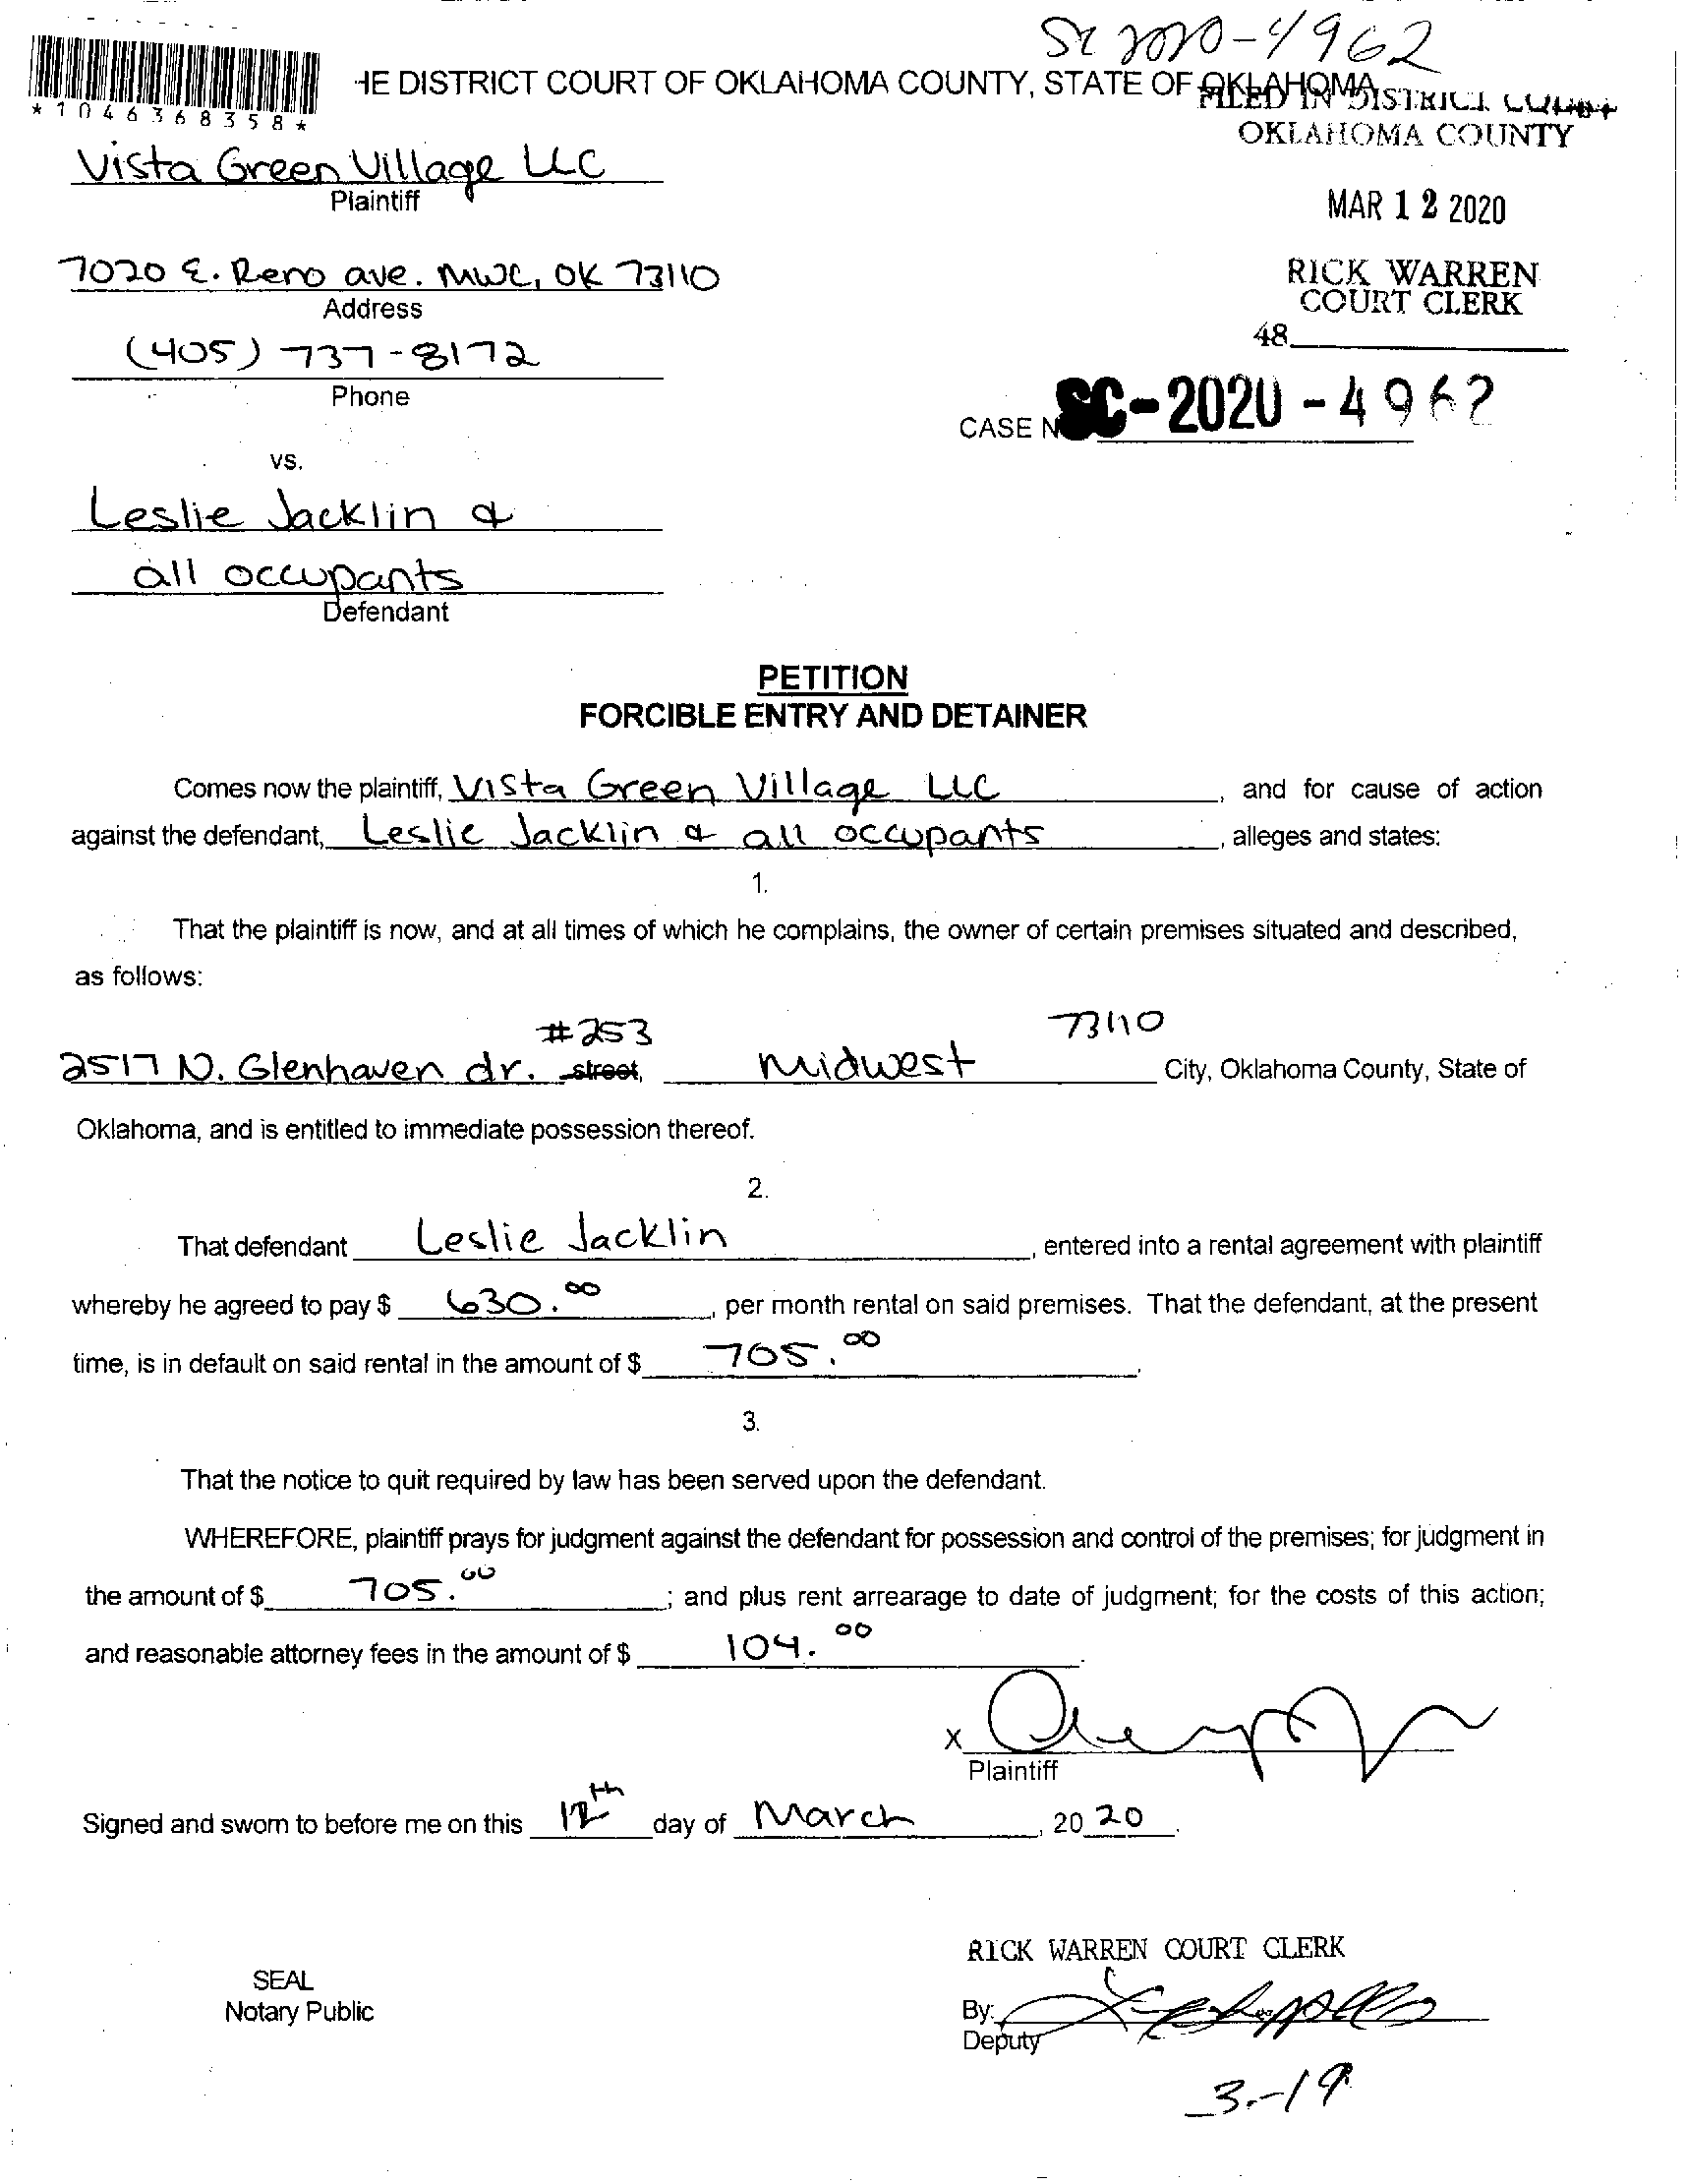 SC 2020-4962
HE DISTRICT COURT OF OKLAHOMA COUNTY, STATE OF OKLAHOMA
FILED IN DISTRICT COURT
OKLAHOMA COUNTY
*1046368358*
Vista Green Village LLC
Plaintiff
MAR 12 2020
7020 E. Reno ave. MWC, OK 73110
Address
RICK WARREN
COURT CLERK
48
(405) 737-8172
Phone
CASE N SC-2020-4962
vs.
Leslie Jacklin &
all occupants
Defendant
PETITION
FORCIBLE ENTRY AND DETAINER
Comes now the plaintiff, Vista Green Village LLC, and for cause of action
against the defendant, Leslie Jacklin & all occupants, alleges and states:
1.
That the plaintiff is now, and at all times of which he complains, the owner of certain premises situated and described,
as follows:
#253 73110
2517 N. Glenhaven dr. street, Midwest City, Oklahoma County, State of
Oklahoma, and is entitled to immediate possession thereof.
2.
That defendant Leslie Jacklin, entered into a rental agreement with plaintiff
whereby he agreed to pay $ 630.00, per month rental on said premises. That the defendant, at the present
time, is in default on said rental in the amount of $ 705.00.
3.
That the notice to quit required by law has been served upon the defendant.
WHEREFORE, plaintiff prays for judgment against the defendant for possession and control of the premises; for judgment in
the amount of $ 705.00; and plus rent arrearage to date of judgment; for the costs of this action;
and reasonable attorney fees in the amount of $ 104.00.
X
Plaintiff
Signed and sworn to before me on this 12th day of March, 2020.
RICK WARREN COURT CLERK
SEAL
Notary Public
By:
Deputy
3-19